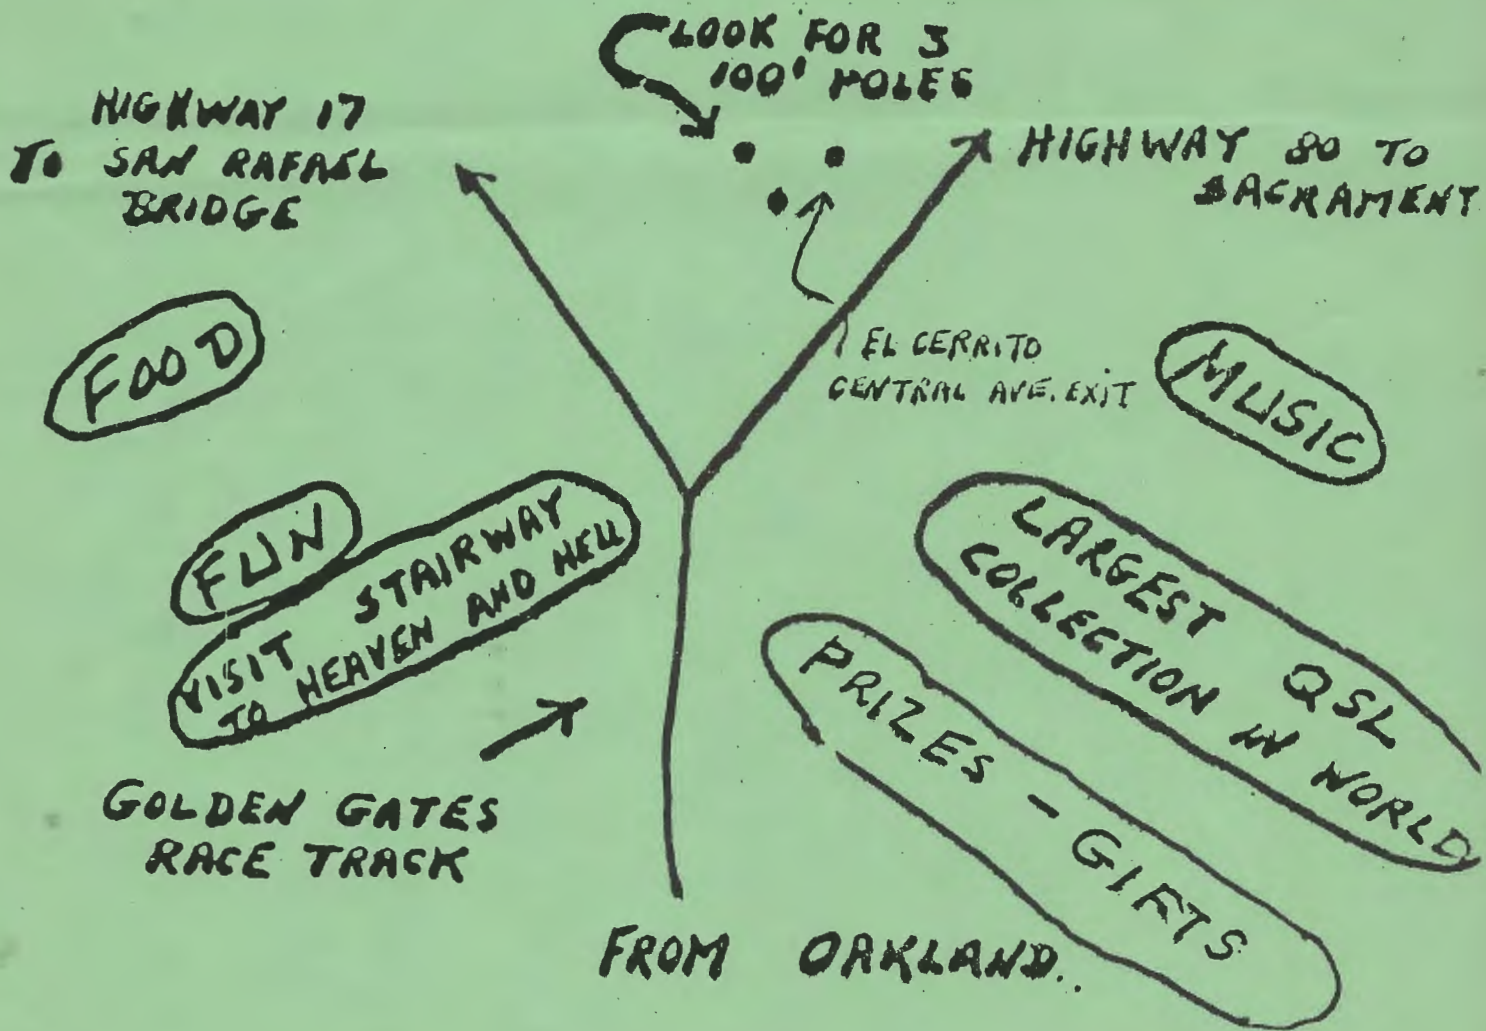 LOOK FOR 3
100' POLES
HIGHWAY 17
TO SAN RAFAEL
BRIDGE
HIGHWAY 80 TO
SACRAMENT
FOOD
EL CERRITO
CENTRAL AVE. EXIT
MUSIC
FUN
VISIT STAIRWAY
TO HEAVEN AND HELL
LARGEST QSL
COLLECTION IN WORLD
PRIZES - GIFTS
GOLDEN GATES
RACE TRACK
FROM OAKLAND..